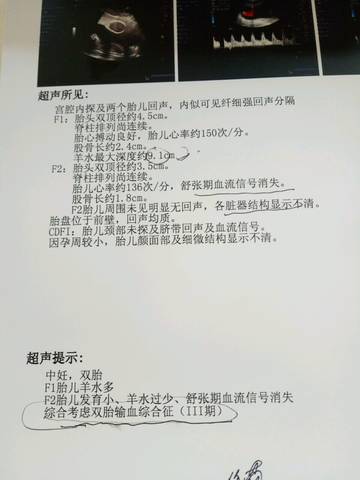 超声所见:
宫腔内探及两个胎儿回声，内似可见纤细强回声分隔
F1：胎头双顶径约4.5cm。
脊柱排列尚连续。
胎心搏动良好，胎儿心率约150次/分。
股骨长约2.4cm。
羊水最大深度约9.1cm
F2：胎头双顶径约3.5cm。
脊柱排列尚连续。
胎儿心率约136次/分，舒张期血流信号消失。
股骨长约1.8cm。
F2胎儿周围未见明显无回声，各脏器结构显示不清。
胎盘位于前壁，回声均质。
CDFI：胎儿颈部未探及脐带回声及血流信号。
因孕周较小，胎儿颜面部及细微结构显示不清。
超声提示:
中妊，双胎
F1胎儿羊水多
F2胎儿发育小、羊水过少、舒张期血流信号消失
综合考虑双胎输血综合征（III期）